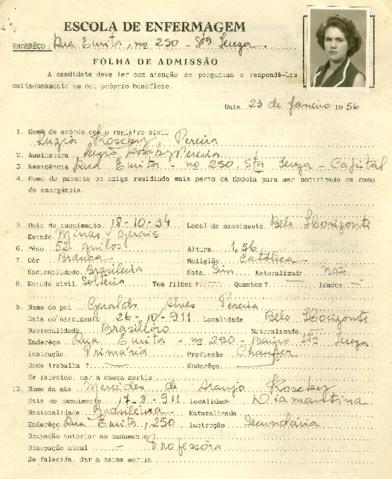 ESCOLA DE ENFERMAGEM
ENDERÊÇO: Rua Emita, nº 250 - Stª Tereza
FÔLHA DE ADMISSÃO
A candidata deve ler com atenção as perguntas e respondê-las
cuidadosamente em seu próprio benefício.
Data 23 de Janeiro 1956
1. Nome de acôrdo com o registro civil
Luzia Roscky Pereira
2. Assinatura Luzia Roscky Pereira
3. Residência Rua Emita - nº 250, Stª Tereza - Capital
4. Nome do parente ou amigo residindo mais perto da Escola para ser notificado em caso
de emergência.
5. Data do nascimento 18-10-34 Local do nascimento Belo Horizonte
Estado Minas Gerais
6. Pêso 52 quilos Altura 1,56
7. Côr Branca Religião Católica
Nacionalidade Brasileira Nata Sim Naturalizada não
8. Estado civil Solteira Tem filhos? Quantos? Idades
9. Nome do pai Geraldo Alves Pereira
Data do nascimento 26-10-911 Localidade Belo Horizonte
Nacionalidade Brasileiro Naturalizado
Enderêço Rua Emita - nº 250 - Bairro Stª Tereza
Instrução Primária Profissão Chauffer
Onde trabalha? Enderêço
Se falecido, dar a causa mortis
Nome da mãe Mercedes de Araujo Roscky
Data do nascimento 17-3-911 Localidade Diamantina
Nacionalidade Brasileira Naturalizada
Enderêço Rua Emita, 250 Instrução Secundária
Ocupação anterior ao casamento
Ocupação atual Professora
Se falecida, dar a causa mortis